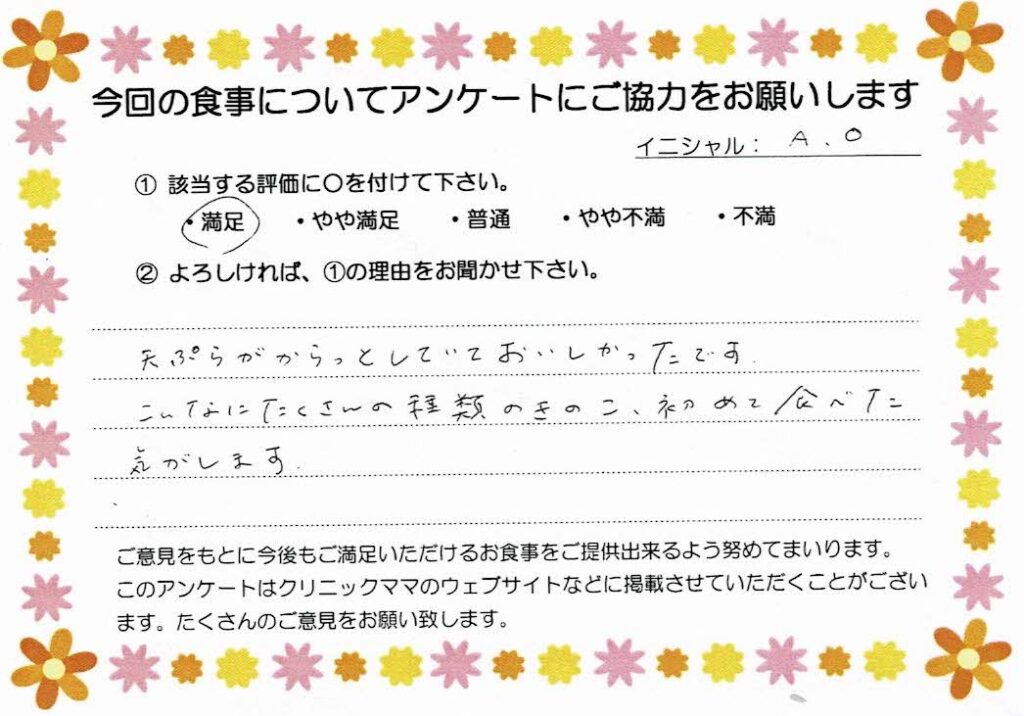 今回の食事についてアンケートにご協力をお願いします
イニシャル： A.O
① 該当する評価に〇を付けて下さい。
・満足 ・やや満足 ・普通 ・やや不満 ・不満
② よろしければ、①の理由をお聞かせ下さい。
天ぷらがからっとしていておいしかったです.
こんなにたくさんの種類のきのこ、初めて食べた
気がします.
ご意見をもとに今後もご満足いただけるお食事をご提供出来るよう努めてまいります。
このアンケートはクリニックママのウェブサイトなどに掲載させていただくことがござい
ます。たくさんのご意見をお願い致します。